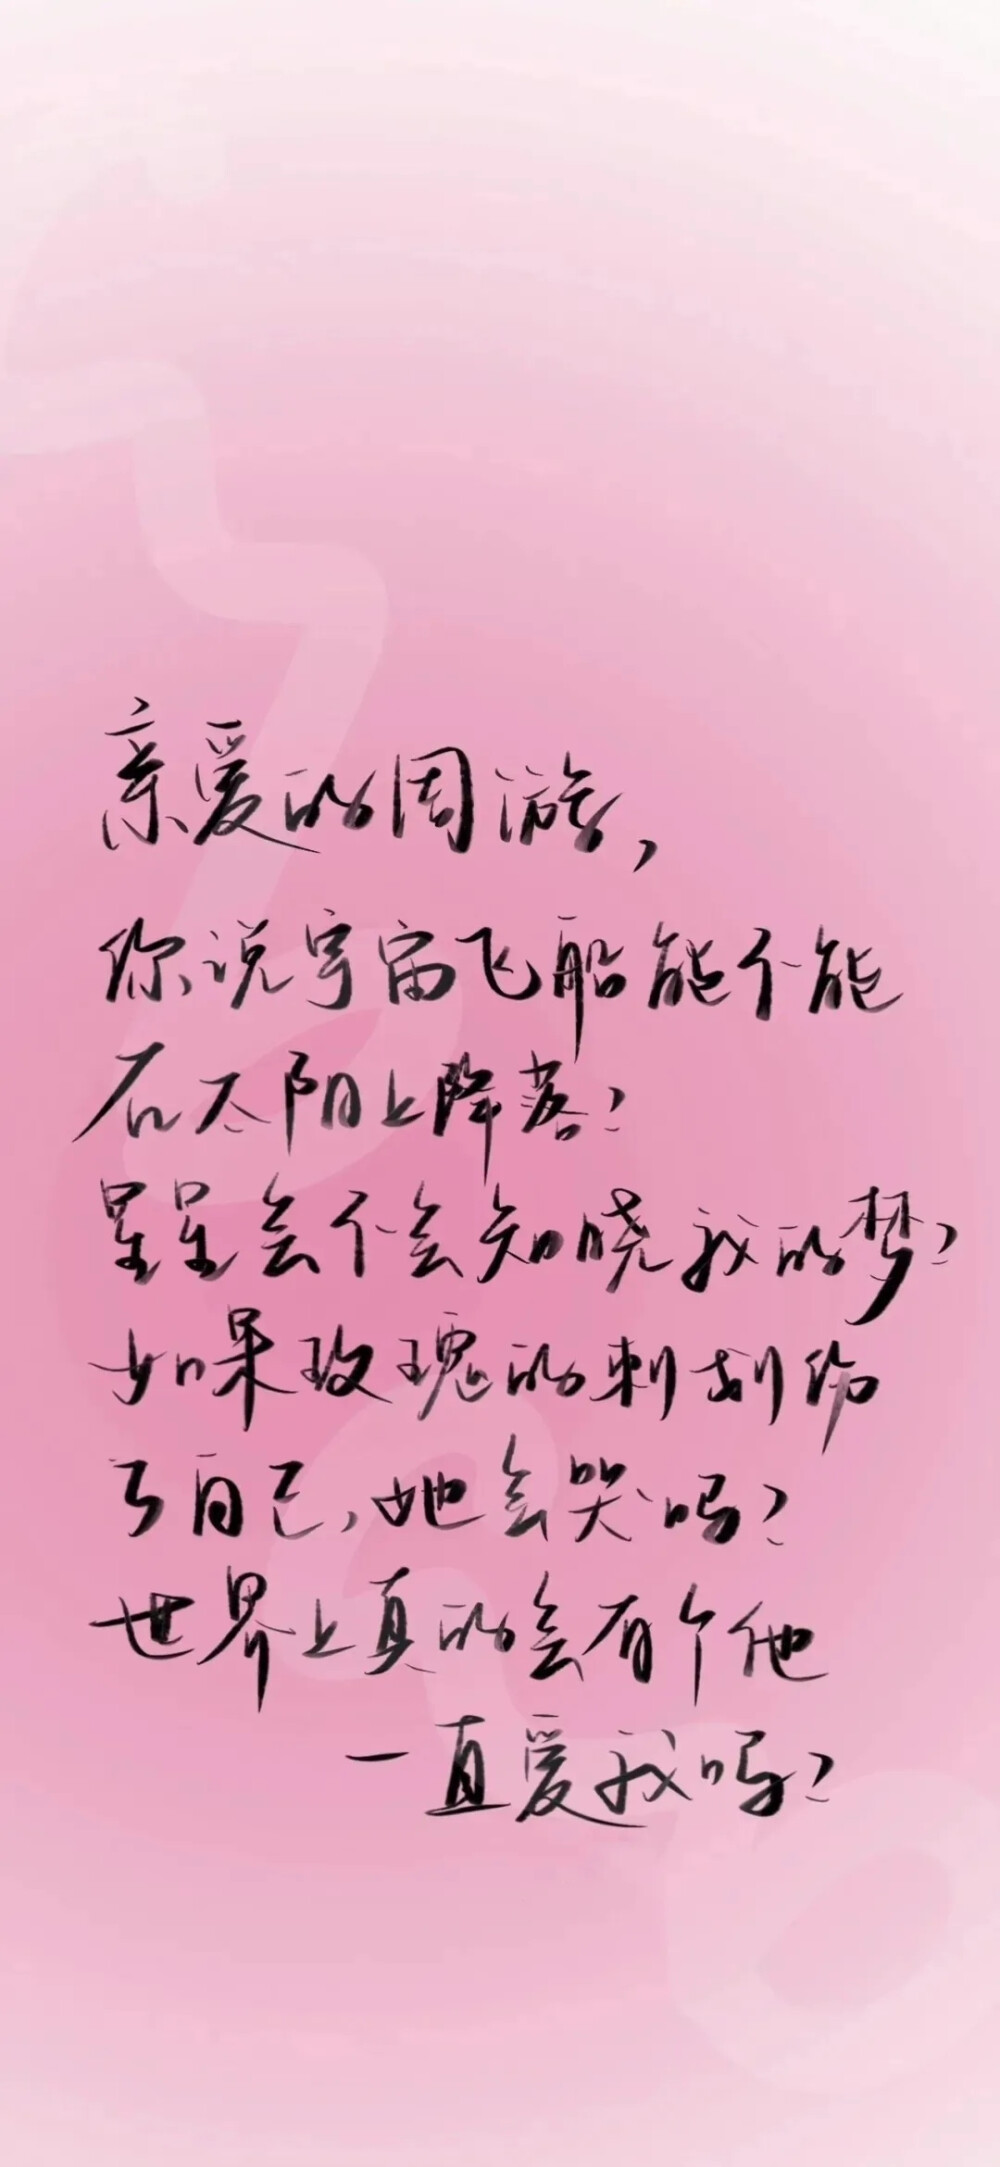 亲爱的周游,
你说宇宙飞船能不能
在太阳上降落?
星星会不会知晓我的梦?
如果玫瑰的刺划伤
了自己,她会哭吗?
世界上真的会有个他
一直爱我吗?